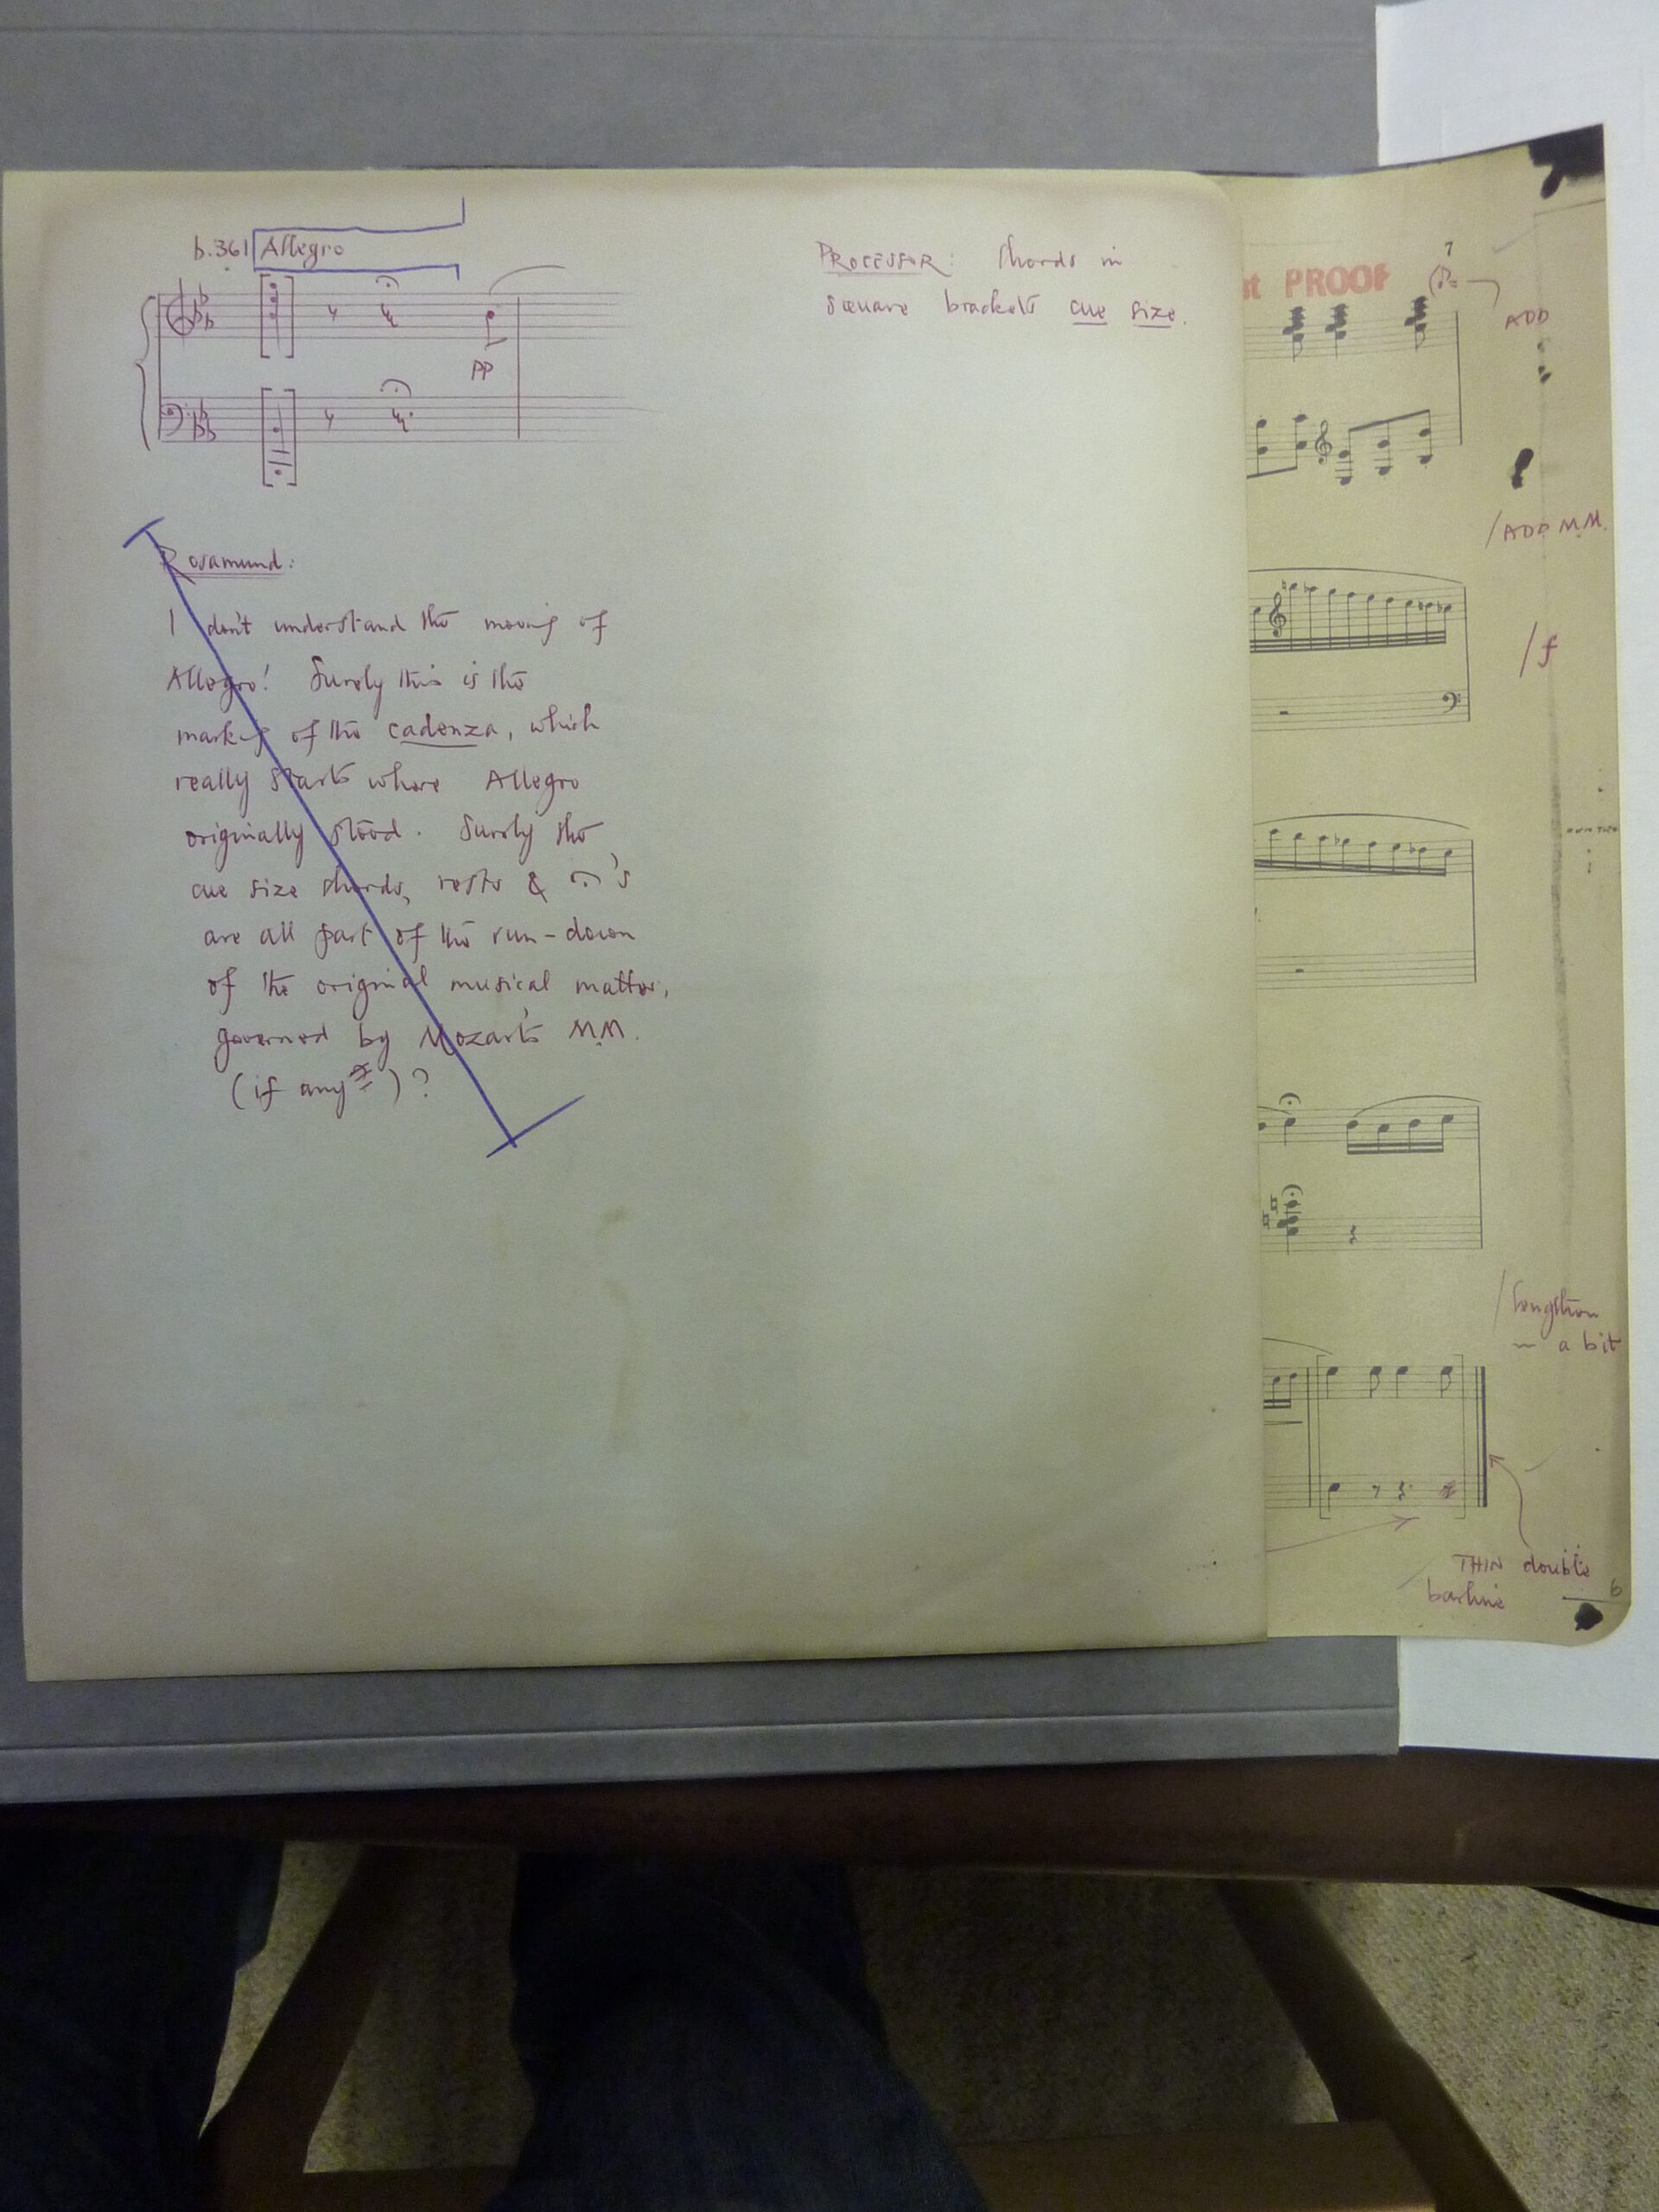 b.361 Allegro
PP
PROCESSOR: Chords in
square brackets cue size.
Rosamund:
I don't understand the moving of
Allegro! Surely this is the
marking of the cadenza, which
really starts where Allegro
originally stood. Surely the
cue size chords, rests & 𝄐's
are all part of the run-down
of the original musical matter,
governed by Mozart's M.M.
(if any
) ?
PROOF
7
ADD
/ADD M.M.
/f
/lengthen
~ a bit
THIN double
barline
6